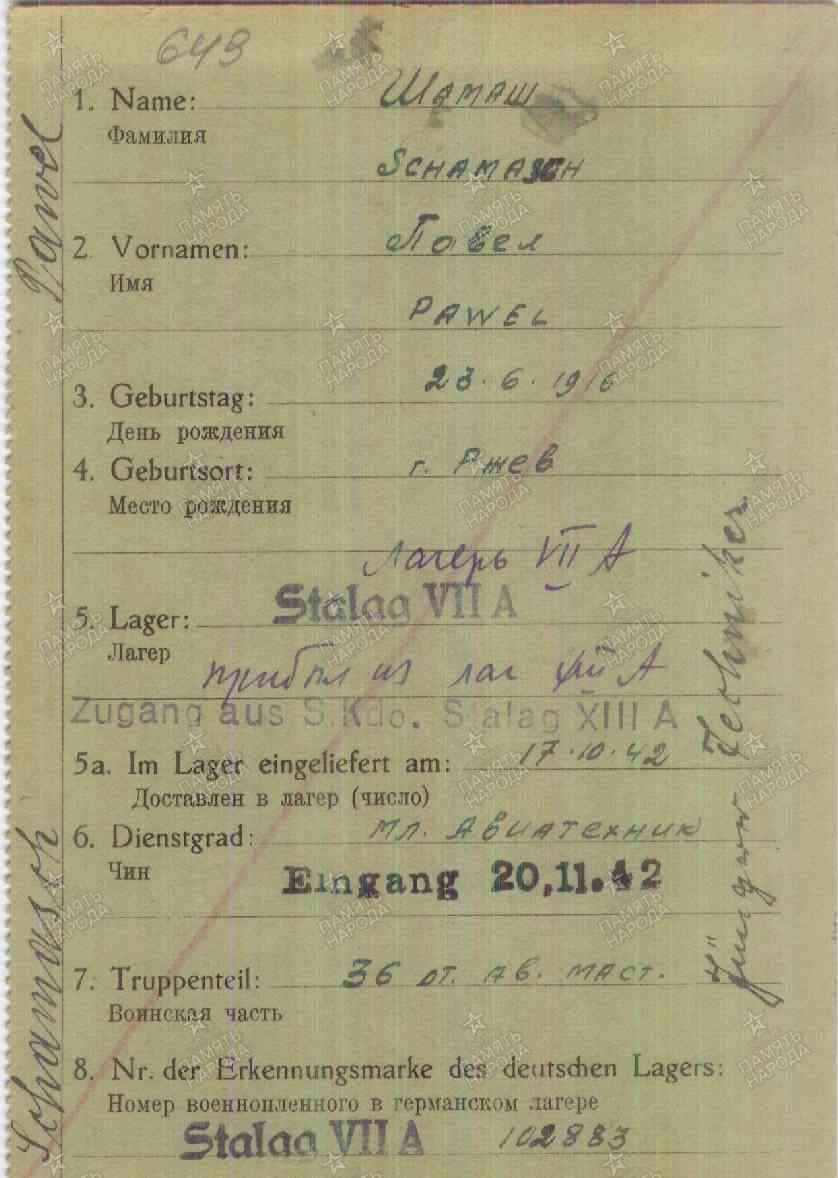 649
1. Name: Шамаш
Фамилия
SCHAMASCH
2. Vornamen: Павел
Имя
PAWEL
3. Geburtstag: 23.6.1916
День рождения
4. Geburtsort: г. Ржев
Место рождения
лагерь VII A
5. Lager: Stalag VII A
Лагер
прибыл из лаг A
Zugang aus S.Kdo. Stalag XIII A
5a. Im Lager eingeliefert am: 17.10.42
Доставлен в лагер (число)
6. Dienstgrad: Мл. Авиатехник
Чин
Eingang 20.11.42
7. Truppenteil: 36 от. ав. маст.
Воинская часть
8. Nr. der Erkennungsmarke des deutschen Lagers:
Номер военнопленного в германском лагере
Stalag VII A 102883
Schamasch Pawel
Techniker
ПАМЯТЬ НАРОДА